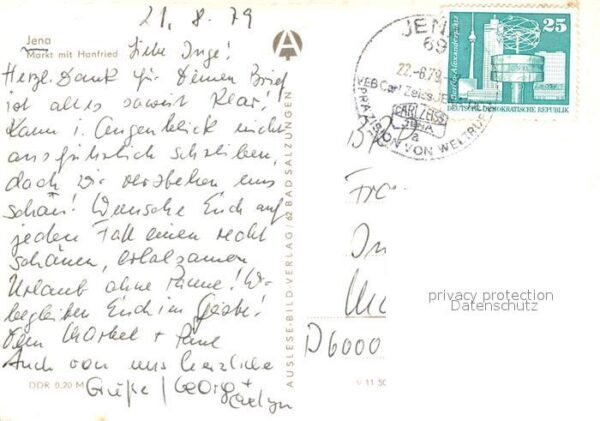 21. 8. 79
Jena
Markt mit Hanfried
Liebe Inge!
Herzl. Dank für Deinen Brief
ist alles soweit klar!
Kann i. Augenblick nicht
ausführlich schreiben,
doch wir verstehen uns
schon! Wünsche Euch auf
jeden Fall einen recht
schönen, erholsamen
Urlaub ohne
begleiten Euch im Geiste!
Auch von uns herzliche
Grüße / Georg +
DDR 0,20 M
AUSLESE-BILD-VERLAG / 62 BAD SALZUNGEN
JENA
69
22.-8.79
VEB Carl Zeiss JENA
CARL ZEISS
JENA
a
PRÄZISION VON WELTRUF
25
Berlin-Alexanderplatz
DEUTSCHE DEMOKRATISCHE REPUBLIK
BRD
In
D6000
V 11 50
privacy protection
Datenschutz